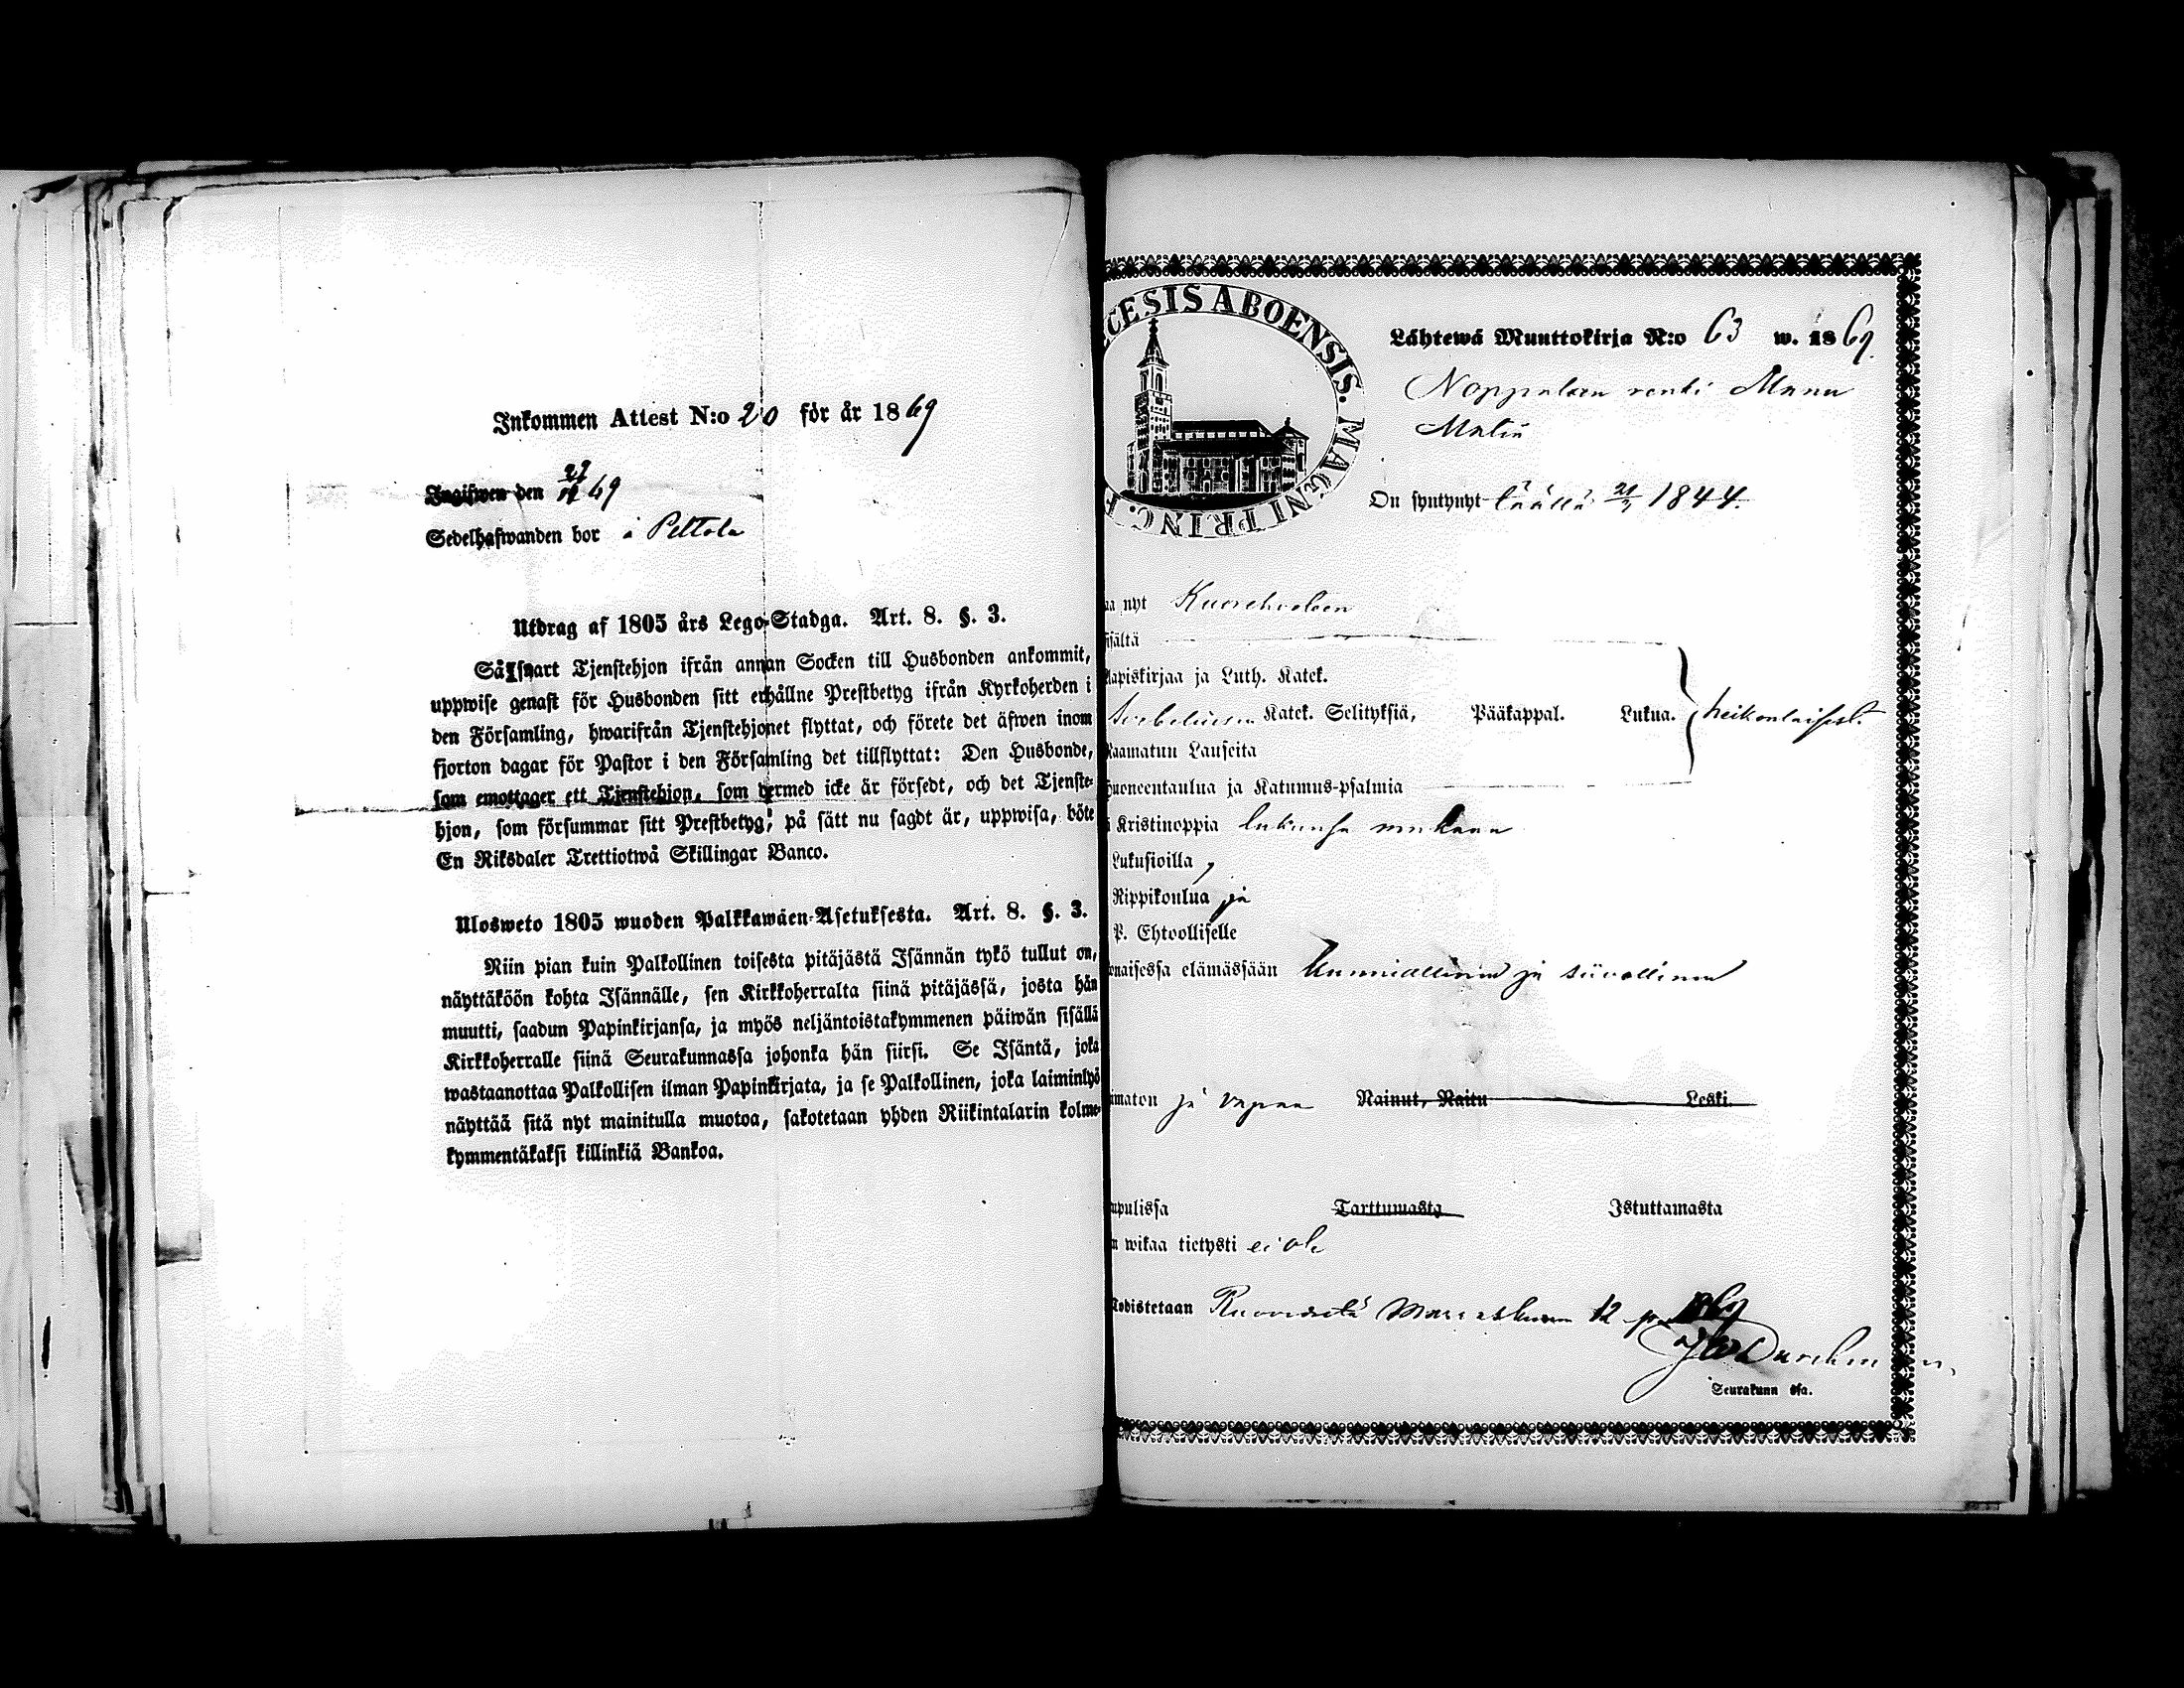 Inkommen Attest N:o 20 för år 1869
Ingifwen den 27/11 69
Sedelhafwanden bor å Peltola
Utdrag af 1805 års Lego-Stadga. Art. 8. §. 3.
Såsnart Tjenstehjon ifrån annan Socken till Husbonden ankommit,
uppwise genast för Husbonden sitt erhållne Prestbetyg ifrån Kyrkoherden i
den Församling, hwarifrån Tjenstehjonet flyttat, och förete det äfwen inom
fjorton dagar för Pastor i den Församling det tillflyttat: Den Husbonde,
som emottager ett Tjenstehjon, som dermed icke är försedt, och det Tjenste-
hjon, som försummar sitt Prestbetyg, på sätt nu sagdt är, uppwisa, böte
En Riksdaler Trettiotwå Skillingar Banco.
Ulosweto 1805 wuoden Palkkawäen-Asetuksesta. Art. 8. §. 3.
Niin pian kuin Palkollinen toisesta pitäjästä Isännän tykö tullut on,
näyttäköön kohta Isännälle, sen Kirkkoherralta siinä pitäjässä, josta hän
muutti, saadun Papinkirjansa, ja myös neljäntoistakymmenen päiwän sisällä
Kirkkoherralle siinä Seurakunnassa johonka hän siirsi. Se Isäntä, joka
wastaanottaa Palkollisen ilman Papinkirjata, ja se Palkollinen, joka laiminlyö
näyttää sitä nyt mainitulla muotoa, sakotetaan yhden Riikintalarin kolme-
kymmentäkaksi killinkiä Bankoa.
CESIS ABOENSIS. MAGNI PRINC. F
Lähtewä Muuttokirja N:o 63 w. 1869.
Noppalan renki Manu
Matin
On syntynyt täällä 21/3 1844.
aa nyt Kuorehveden
sisältä
Aapiskirjaa ja Luth. Katek.
Katek. Selityksiä, Pääkappal. Lukua. heikonlaisest.
Raamatun Lauseita
Huoneentaulua ja Katumus-psalmia
Kristinoppia lukunsa mukaan
Lukusioilla,
Rippikoulua ja
P. Ehtoolliselle
onaisessa elämässään kunniallinen ja siivollinen
imaton ja vapaa Nainut, Naitu Leski.
upulissa Tarttumasta Istuttamasta
n wikaa tietysti ei ole
Todistetaan Ruovedeltä Marraskuun 12 p. 1869
Durchman
Seurakunn :sa.